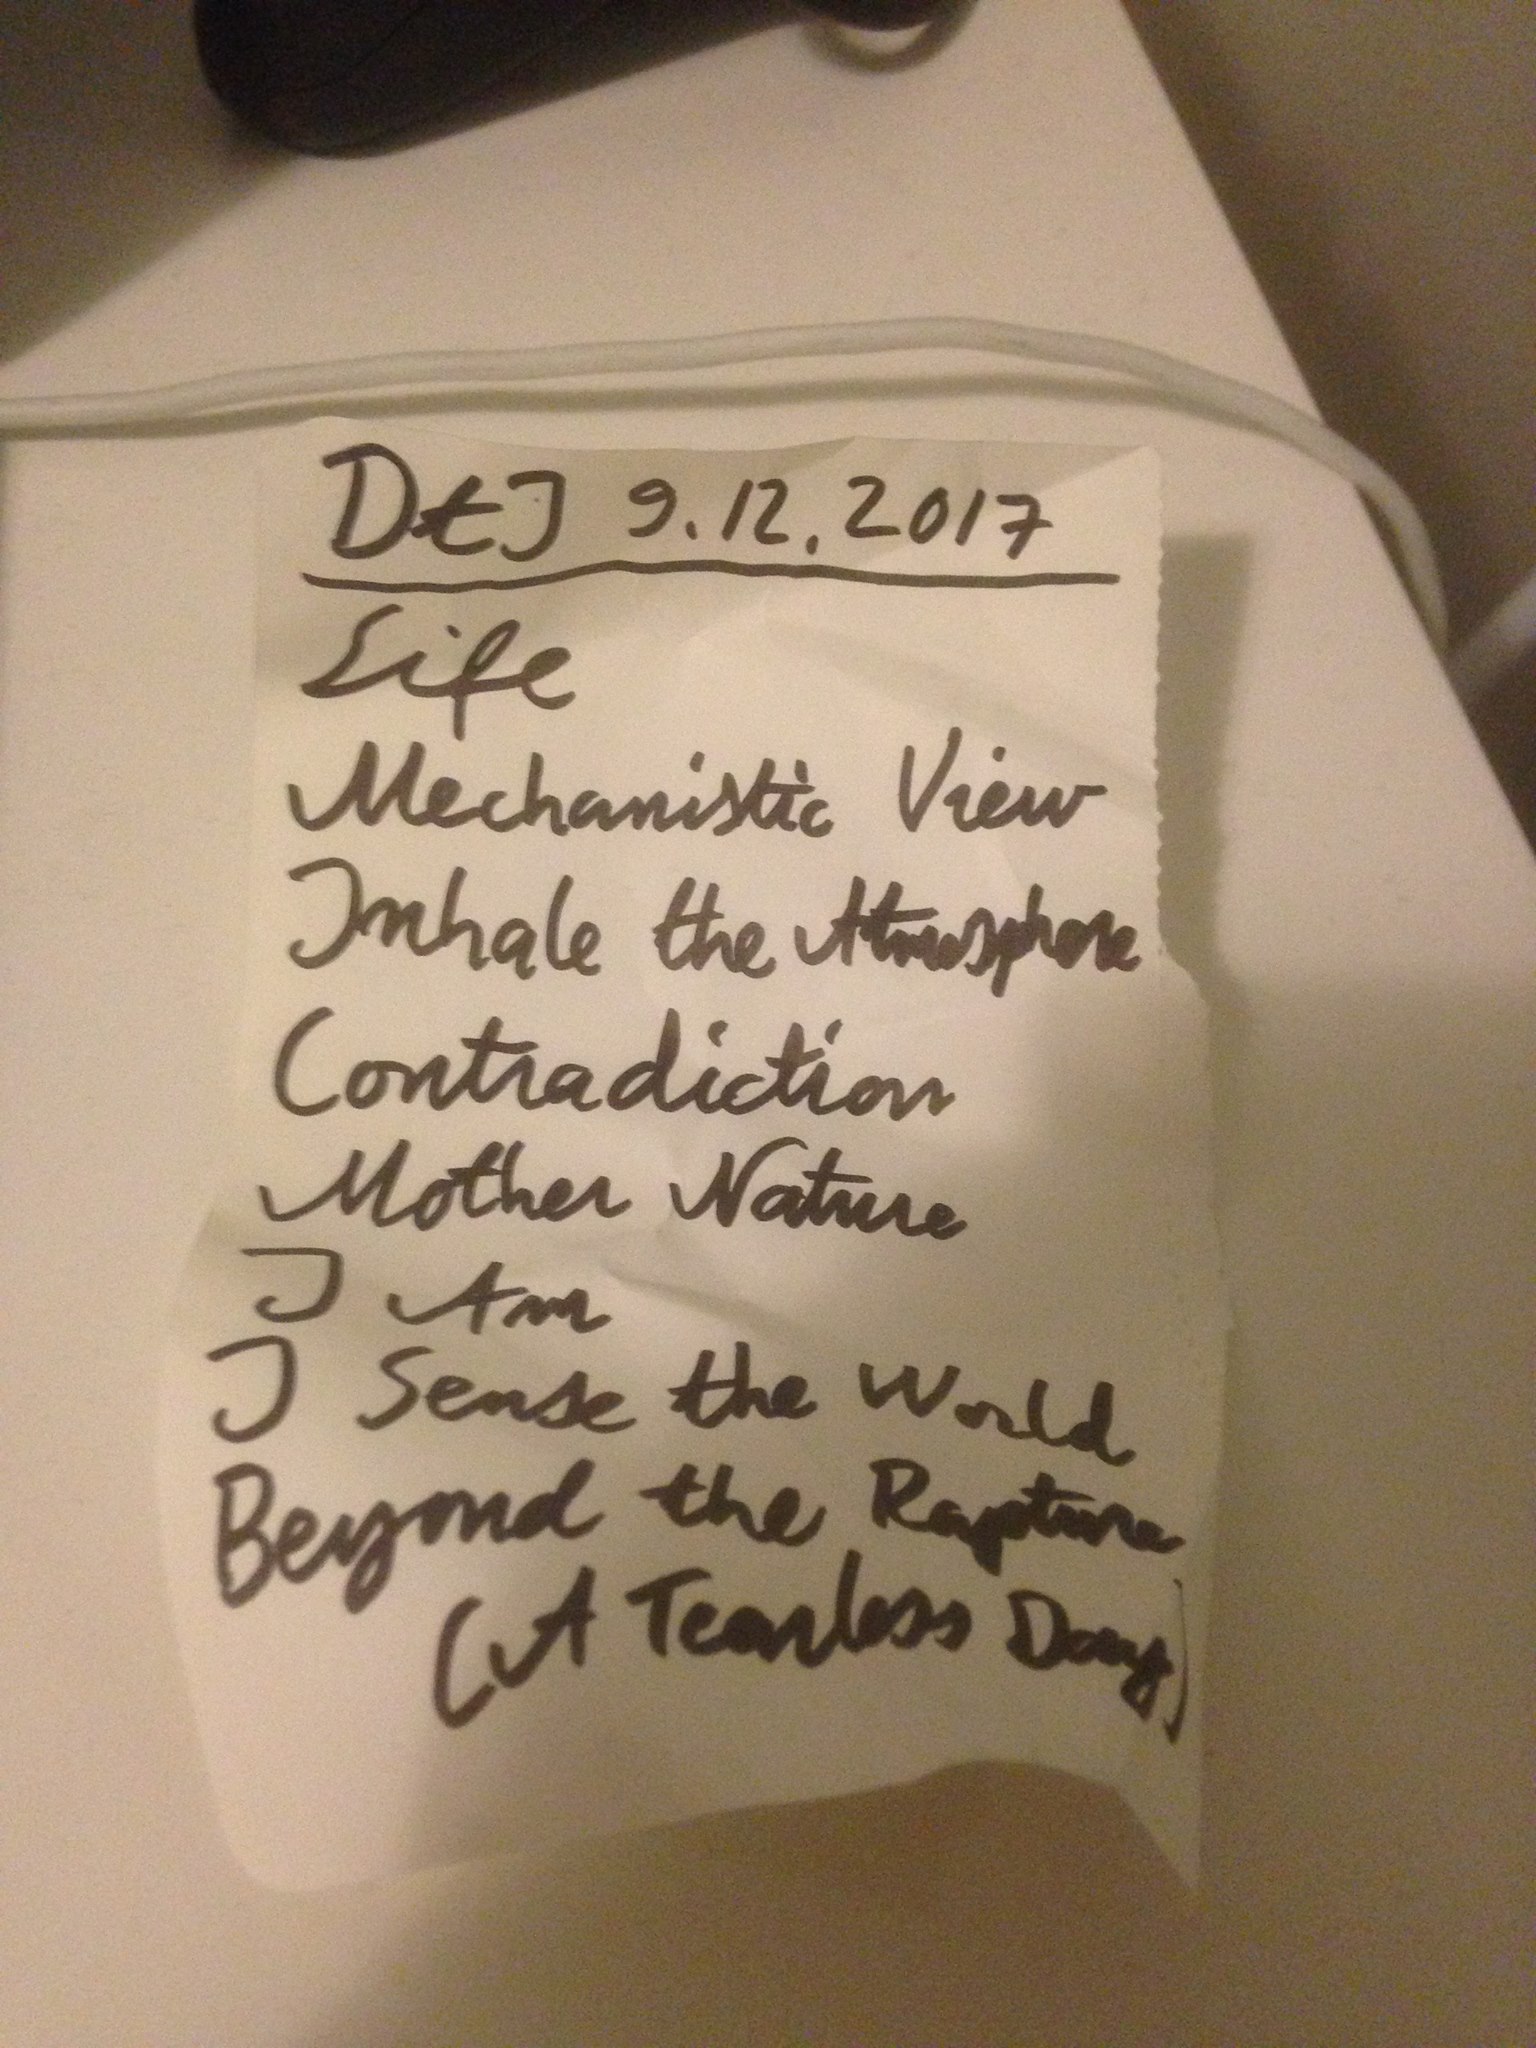 DtJ 9.12.2017
Life
Mechanistic View
Inhale the Atmosphere
Contradiction
Mother Nature
I Am
I Sense the World
Beyond the Rapture
(A Tearless Day)